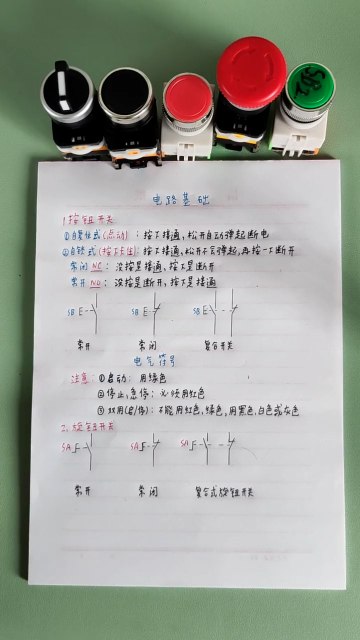 电路基础
1.按钮开关
①自复位式(点动)：按下接通，松开自动弹起断电
②自锁式(按下卡住)：按下接通，松开不会弹起，再按一下断开
常闭 NC：没按是接通，按下是断开
常开 NO：没按是断开，按下是接通
SB E SB E SB E
常开 常闭 复合开关
电气符号
注意：①启动：用绿色
②停止，急停：必须用红色
③双用(启/停)：不能用红色，绿色，用黑色，白色或灰色
2.旋钮开关
SA SA SA
常开 常闭 复合式旋钮开关